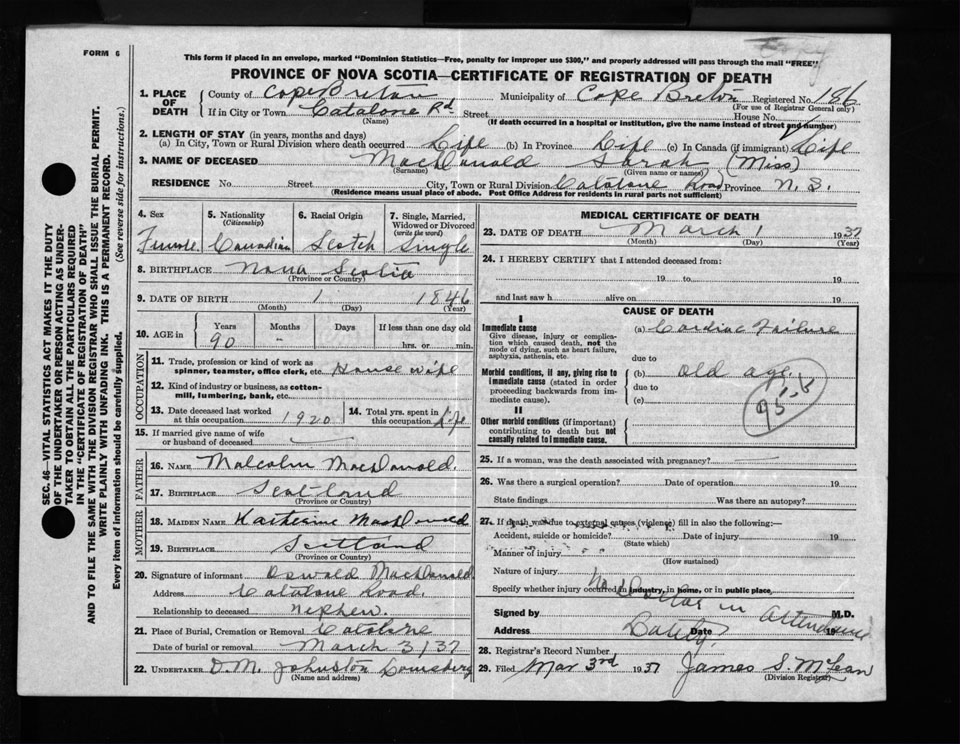 FORM 6
This form if placed in an envelope, marked "Dominion Statistics—Free, penalty for improper use $300," and properly addressed will pass through the mail "FREE"
PROVINCE OF NOVA SCOTIA—CERTIFICATE OF REGISTRATION OF DEATH
1. PLACE OF DEATH
County of Cape Breton Municipality of Cape Breton Registered No. 186
(For use of Registrar General only)
If in City or Town Catalone Rd Street House No.
(Name) (If death occurred in a hospital or institution, give the name instead of street and number)
2. LENGTH OF STAY (in years, months and days)
(a) In City, Town or Rural Division where death occurred Life (b) In Province Life (c) In Canada (if immigrant) Life
3. NAME OF DECEASED MacDonald Sarah (Miss)
(Surname) (Given name or names)
RESIDENCE No. Street City, Town or Rural Division Catalone Road Province N.S.
(Residence means usual place of abode. Post Office Address for residents in rural parts not sufficient)
SEC. 46—VITAL STATISTICS ACT MAKES IT THE DUTY
OF THE UNDERTAKER OR PERSON ACTING AS UNDER-
TAKER TO OBTAIN ALL THE PARTICULARS REQUIRED
IN THE "CERTIFICATE OF REGISTRATION OF DEATH"
AND TO FILE THE SAME WITH THE DIVISION REGISTRAR WHO SHALL ISSUE THE BURIAL PERMIT.
WRITE PLAINLY WITH UNFADING INK. THIS IS A PERMANENT RECORD.
Every item of information should be carefully supplied. (See reverse side for instructions.)
4. Sex
Female
5. Nationality
(Citizenship)
Canadian
6. Racial Origin
Scotch
7. Single, Married,
Widowed or Divorced
(write the word)
Single
8. BIRTHPLACE Nova Scotia
(Province or Country)
9. DATE OF BIRTH 1 1846
(Month) (Day) (Year)
10. AGE in
Years Months Days If less than one day old
90 - hrs. or min.
OCCUPATION
11. Trade, profession or kind of work as
spinner, teamster, office clerk, etc. House wife
12. Kind of industry or business, as cotton-
mill, lumbering, bank, etc.
13. Date deceased last worked
at this occupation 1920
14. Total yrs. spent in
this occupation Life
15. If married give name of wife
or husband of deceased
FATHER
16. NAME Malcolm MacDonald.
17. BIRTHPLACE Scotland
(Province or Country)
MOTHER
18. MAIDEN NAME Katherine MacDonald
19. BIRTHPLACE Scotland
(Province or Country)
20. Signature of informant Oswald MacDonald.
Address Catalone Road.
Relationship to deceased nephew.
21. Place of Burial, Cremation or Removal Catalone
Date of Burial or Removal March 3/37
22. UNDERTAKER D.M. Johnston Louisburg
(Name and address)
MEDICAL CERTIFICATE OF DEATH
23. DATE OF DEATH March 1 1937
(Month) (Day) (Year)
24. I HEREBY CERTIFY that I attended deceased from:
19 to 19
and last saw h alive on 19
CAUSE OF DEATH
I
Immediate cause
Give disease, injury or complica-
tion which caused death, not the
mode of dying, such as heart failure,
asphyxia, asthenia, etc.
(a) Cardiac Failure
due to
Morbid conditions, if any, giving rise to
immediate cause (stated in order
proceeding backwards from im-
mediate cause).
(b) old age.
due to
(c)
II
Other morbid conditions (if important)
contributing to death but not
causally related to immediate cause.
25. If a woman, was the death associated with pregnancy?
26. Was there a surgical operation? Date of operation 19
State findings Was there an autopsy?
27. If death was due to external causes (violence) fill in also the following:—
Accident, suicide or homicide? Date of injury 19
(State which)
Manner of injury
(How sustained)
Nature of injury
Specify whether injury occurred in industry, in home, or in public place,
No Doctor in attendance
Signed by M.D.
Address Date 19
28. Registrar's Record Number
29. Filed Mar 3rd 1937 James S. McLean
(Division Registrar)